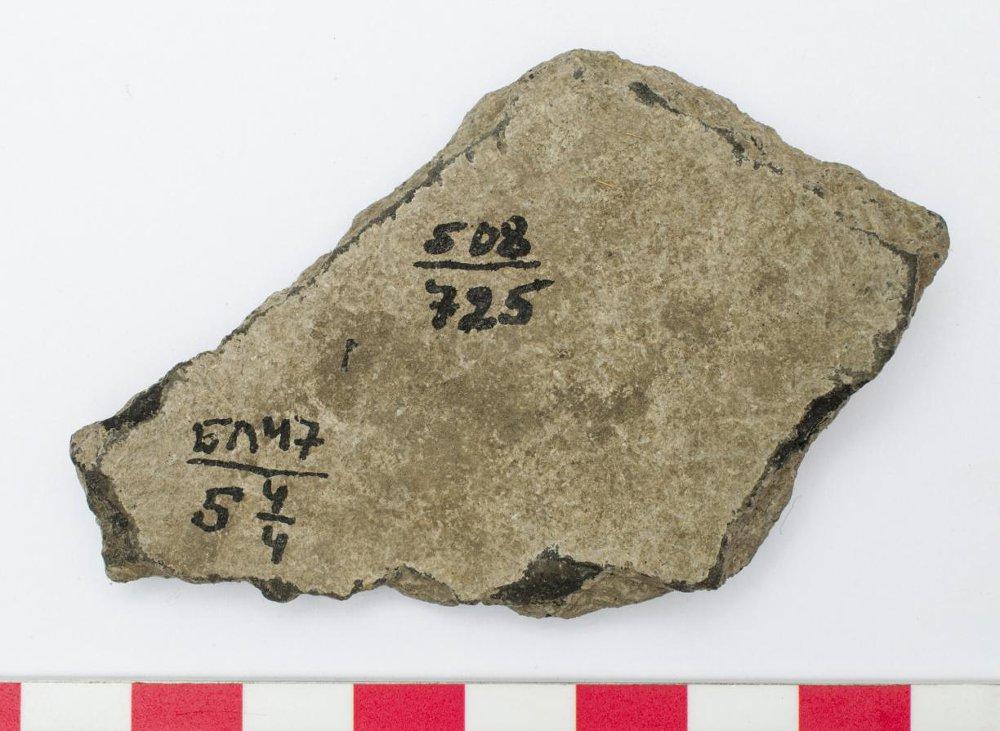 508
725
БЛ47
5 4/4